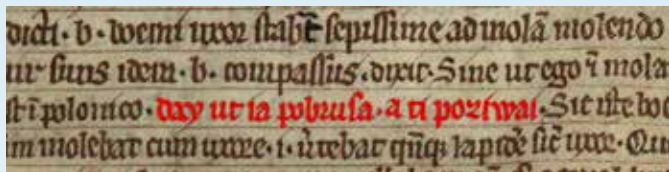 dicti · b · boemi uxor stabat sepissime ad molā molendo
ur suus idem · b · compassus · dixit · Sine ut ego ī mola
st ī polonico · day ut ia pobrusa · a ti poziwai · Sic iste bo
im molebat cum uxore · i · v̓tebat qn̄qꝫ lapidē sic̄ uxor · Qu